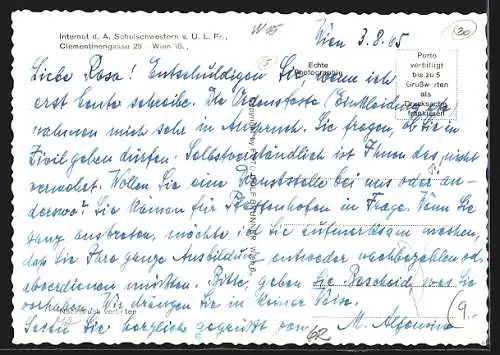 Internat d. A. Schulschwestern v. U. L. Fr.,
Clementinengasse 25 - Wien 15.,
W 15
30
Wien 3.8.65
Echte
Photographie
Porto
verbilligt
bis zu 5
Grußworten
als
Drucksache
frankieren
Liebe Rosa! Entschuldigen Sie, wenn ich
erst heute schreibe. Die Ordensfeste (Einkleidung etc)
nahmen mich sehr in Anspruch. Sie fragen, ob Sie in
Zivil gehen dürfen. Selbstverständlich ist Ihnen das nicht
verwehrt. Wollen Sie eine Dienststelle bei uns oder an-
derswo? Sie kämen für Pfaffenhofen in Frage. Wenn Sie
ganz austreten, möchte ich Sie aufmerksam machen,
daß Sie Ihre ganze Ausbildung entweder nachbezahlen od.
abverdienen müßten. Bitte, geben Sie Bescheid, was Sie
vorhaben. Wir drängen Sie in keiner Weise.
Nachdruck verboten
Seien Sie herzlich gegrüßt von M. Alfonsina
62
9.-